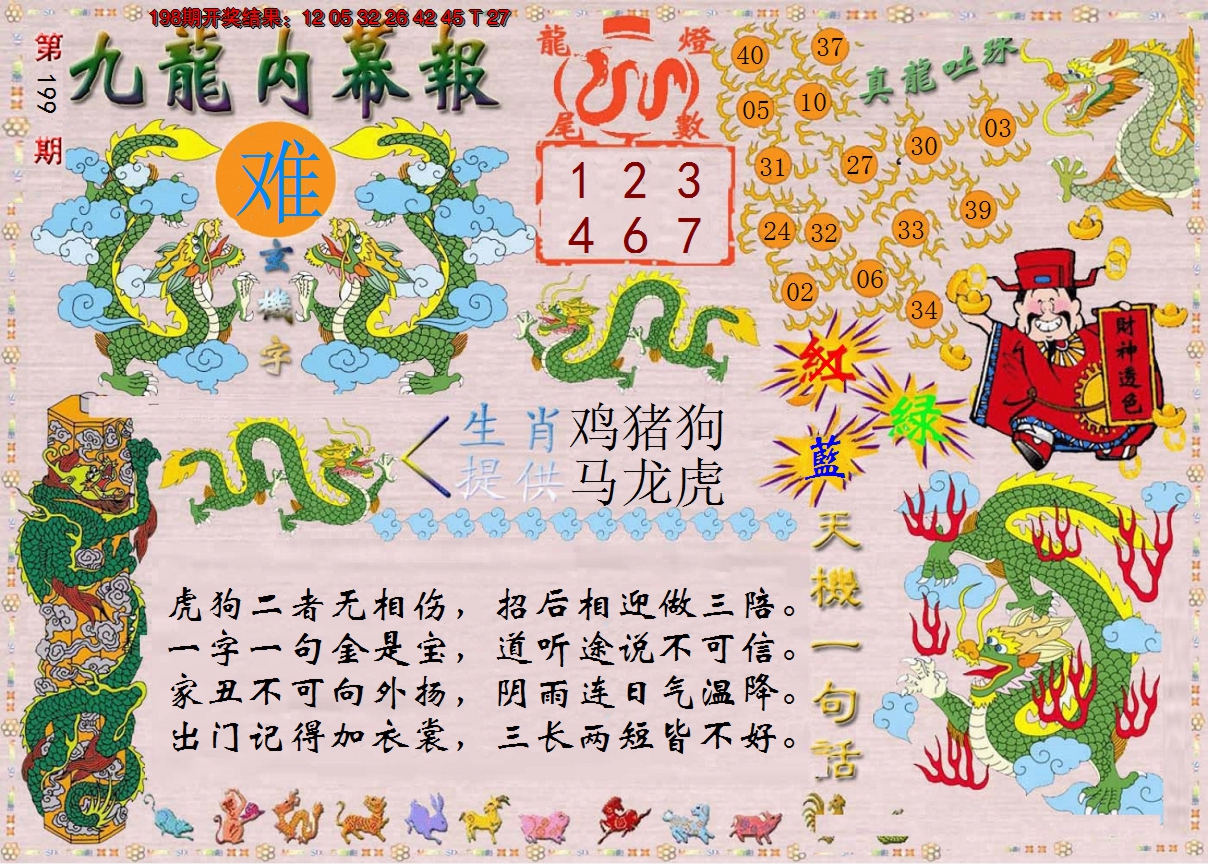 198期开奖结果：12 05 32 26 42 45 T 27
第199期
九龍内幕報
难
玄機字
龍燈
尾數
1 2 3
4 6 7
真龍吐珠
40 37
05 10
30 03
31 27
39
24 32 33
02 06
34
財神透色
紅
綠
藍
生肖 鸡猪狗
提供 马龙虎
天機一句話
虎狗二者无相伤，招后相迎做三陪。
一字一句金是宝，道听途说不可信。
家丑不可向外扬，阴雨连日气温降。
出门记得加衣裳，三长两短皆不好。